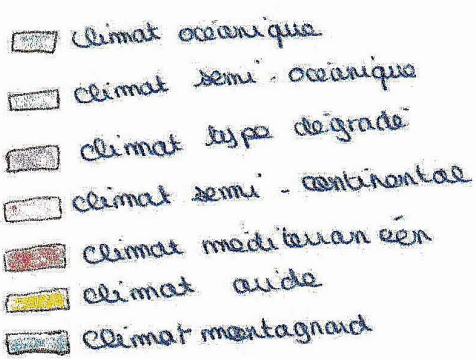 climat océanique
climat semi-océanique
climat type dégradé
climat semi-continental
climat méditerranéén
climat aride
climat montagnard